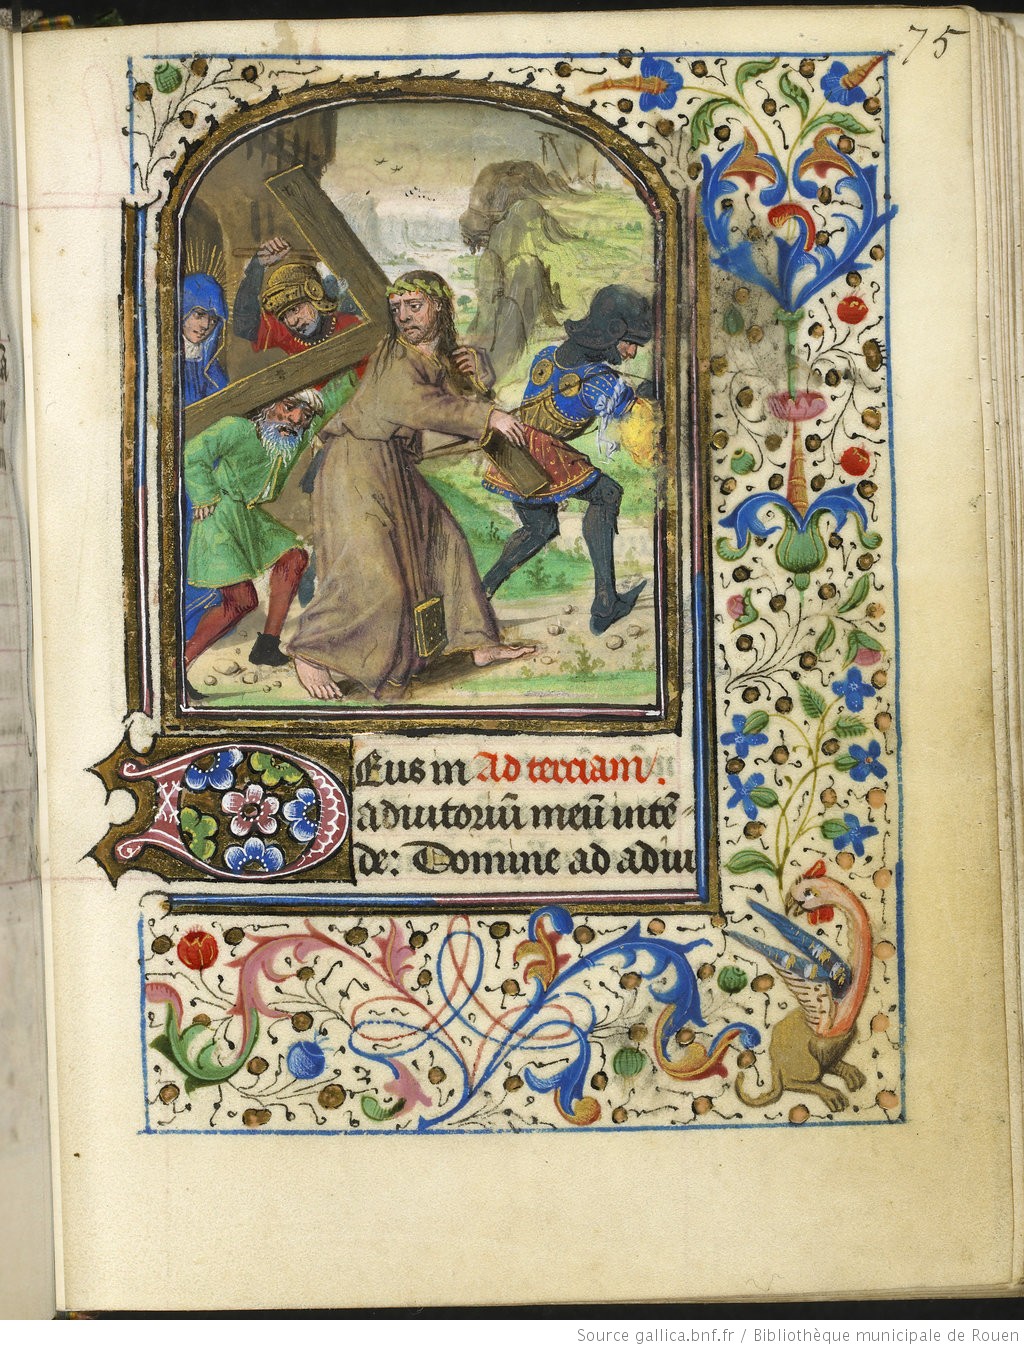 75
Deus in Ad terciam.
adiutoriū meū intē-
de: Domine ad adiu
Source gallica.bnf.fr / Bibliothèque municipale de Rouen